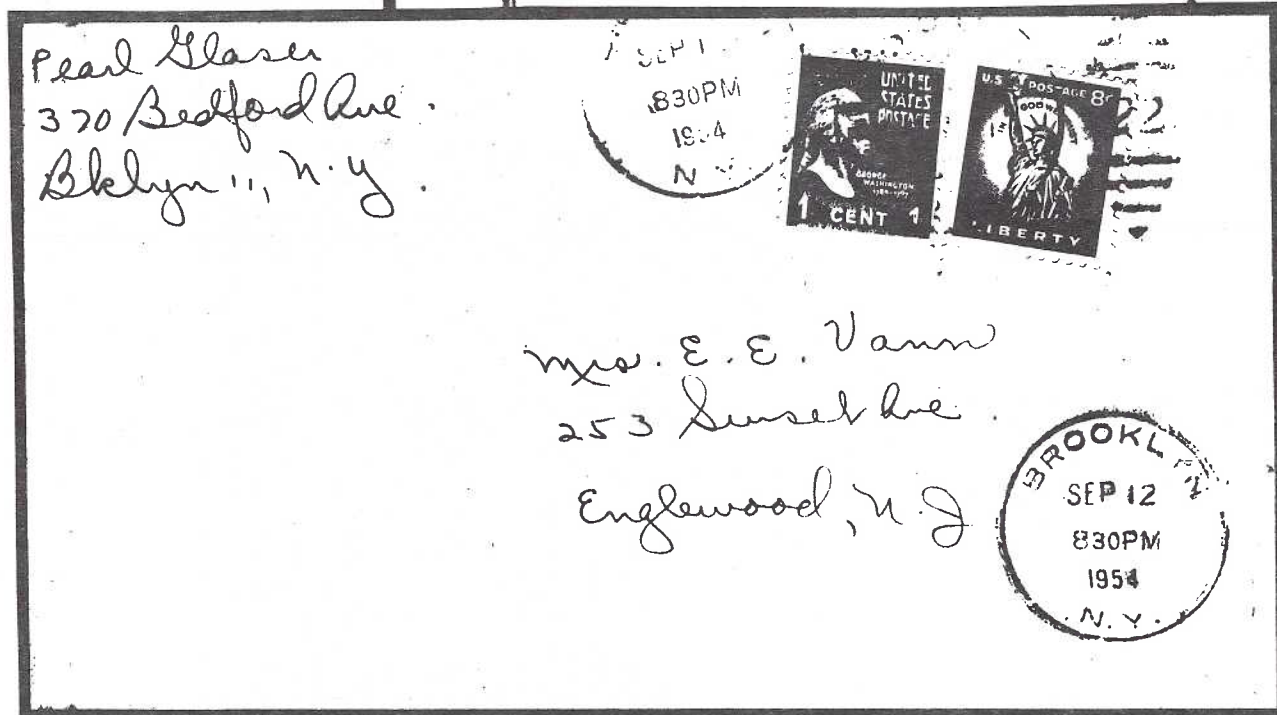 Pearl Glaser
370 Bedford Ave.
Bklyn 11, N.Y.
SEP 1
830PM
1954
N.Y.
UNITED
STATES
POSTAGE
GEORGE
WASHINGTON
1 CENT 1
U.S. POSTAGE 8¢
IN GOD WE
LIBERTY
Mrs. E. E. Vann
253 Sunset Ave.
Englewood, N.J
BROOKLYN
SEP 12
830PM
1954
N.Y.